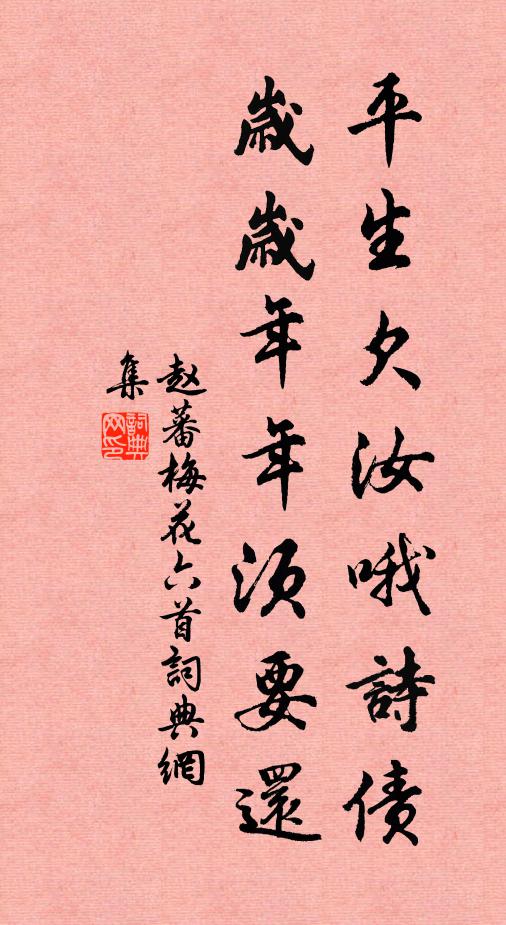 平生欠汝哦詩债
歲歲年年須要還
赵蕃梅花六首詞典網
集
詞典
网印